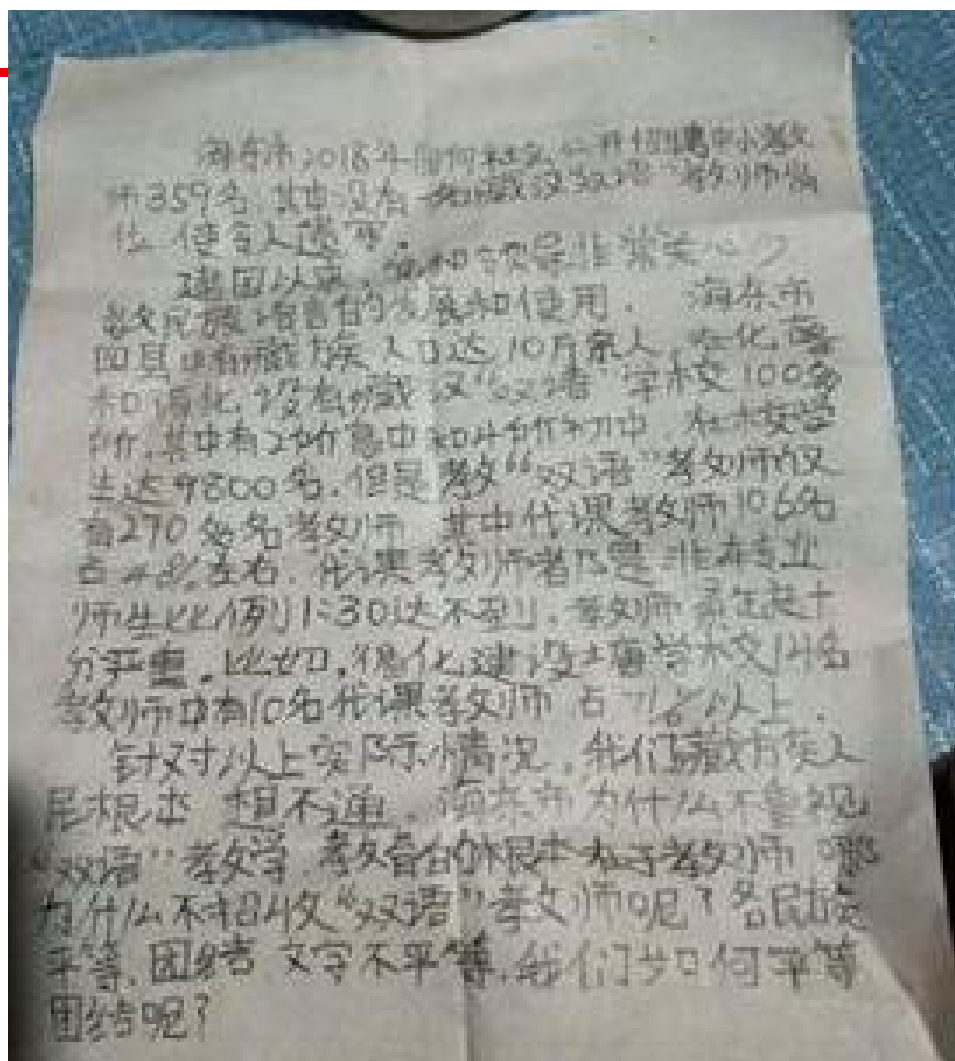 海东市2018年面向社会公开招聘中小教
师359名,其中没有一名藏汉双语"教师岗
位,使吾人遗
建国以来,和领导非常关心少
数民族语言的发展和使用. 海东市
四县 藏族人口达10万余人,在化隆
和循化,设有藏汉"双语"学校100多
所,其中有2所高中和4所初中,在校学
生达9800名,但是教"双语"教师仅
有270多名教师 其中代课教师106名
占48%左右.代课教师者乃是非本专业
师生比例1:30达不到,教师紊乱十
分严重,比如,循化建设 学校14名
教师中有10名代课教师占71%以上.
针对以上实际情况,我们藏族人
民根本想不通,海东市为什么不重视
"双语"教学,教育的根本在于教师 哪
为什么不招收"双语"教师呢?各民族
平等,团结 文字不平等,我们如何平等
团结呢?